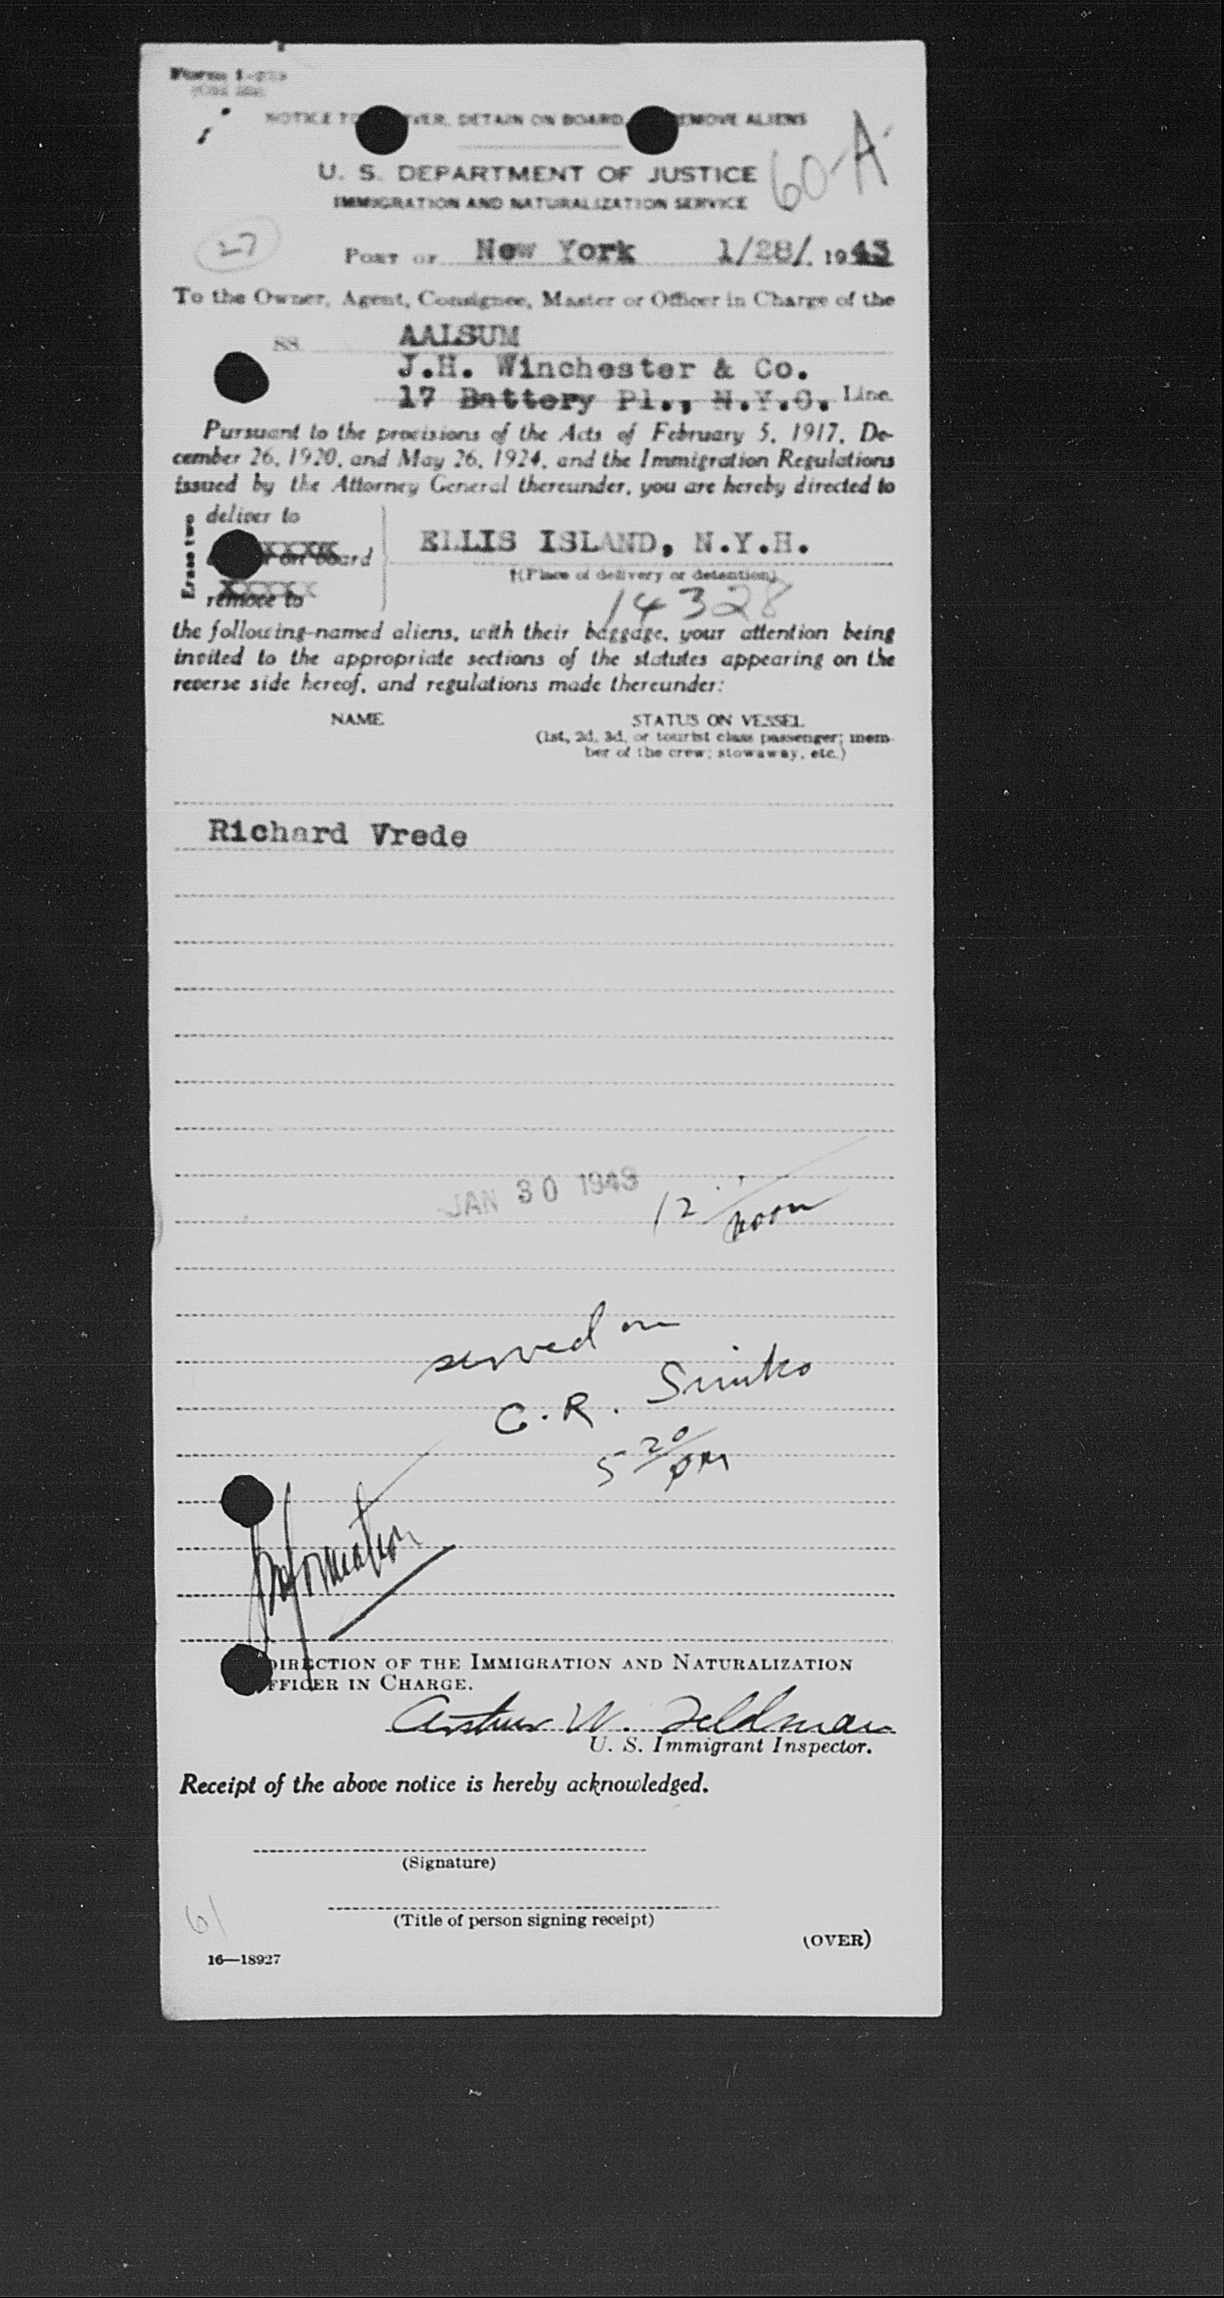 Form I-259
NOTICE TO DELIVER, DETAIN ON BOARD, REMOVE ALIENS
60-A
U. S. DEPARTMENT OF JUSTICE
IMMIGRATION AND NATURALIZATION SERVICE
27
PORT OF New York 1/28/ 1943
To the Owner, Agent, Consignee, Master or Officer in Charge of the
SS. AALSUM
J.H. Winchester & Co.
17 Battery Pl., N.Y.C. Line.
Pursuant to the provisions of the Acts of February 5, 1917, De-
cember 26, 1920, and May 26, 1924, and the Immigration Regulations
issued by the Attorney General thereunder, you are hereby directed to
Erase two
deliver to
on board
ELLIS ISLAND, N.Y.H.
†(Place of delivery or detention)
remove to
14328
the following-named aliens, with their baggage, your attention being
invited to the appropriate sections of the statutes appearing on the
reverse side hereof, and regulations made thereunder:
NAME STATUS ON VESSEL
(1st, 2d, 3d, or tourist class passenger; mem-
ber of the crew; stowaway, etc.)
Richard Vrede
JAN 30 1943 12 noon
served on
C. R.
5 20/PM
Information
DIRECTION OF THE IMMIGRATION AND NATURALIZATION
OFFICER IN CHARGE.
Arthur W. Feldman
U. S. Immigrant Inspector.
Receipt of the above notice is hereby acknowledged.
(Signature)
61
(Title of person signing receipt)
(OVER)
16—18927